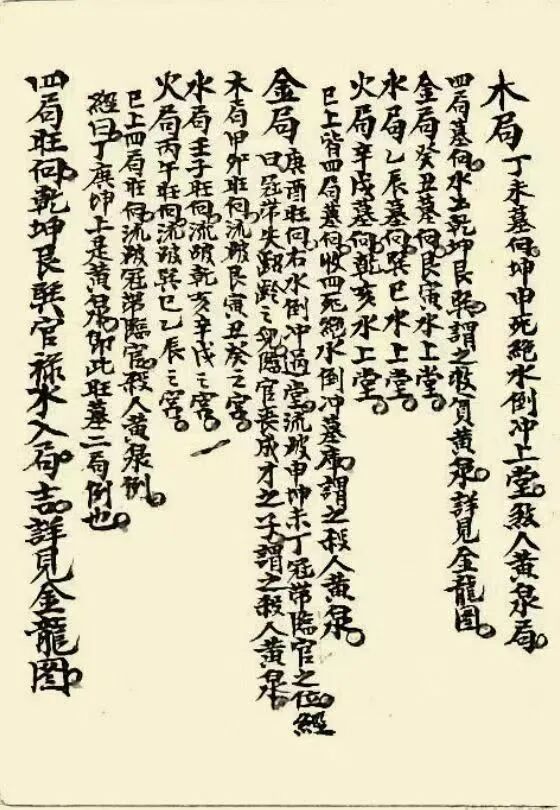 木局丁未墓向坤申死絕水倒冲上堂殺人黃泉局
四局墓向水出乾坤艮巽謂之救貧黃泉詳見金龍圖
金局癸丑墓向艮寅水上堂
水局乙辰墓向巽巳水上堂
火局辛戌墓向乾亥水上堂
已上皆四局墓向收四死絕水倒冲墓庫謂之殺人黃泉
金局庚酉旺向右水倒冲過堂流破申坤未丁冠帶臨官之位經
曰冠帶失韶齡之兒臨官喪成才之子謂之殺人黃泉
木局甲卯旺向流破艮寅丑癸之害
水局壬子旺向流破乾亥辛戌之害
火局丙午旺向流破巽巳乙辰之害
已上四局旺向流破冠帶臨官殺人黃泉例
經曰丁庚坤上是黃泉即此旺墓二局例也
四局旺向乾坤艮巽官祿水入局吉詳見金龍圖